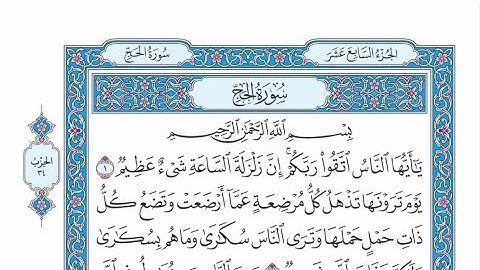 الجُزْءُ السَّابِعَ عَشَرَ
سُورَةُ الحَجِّ
سُورَةُ الحَجِّ
بِسْمِ اللَّهِ الرَّحْمَٰنِ الرَّحِيمِ
يَٰٓأَيُّهَا ٱلنَّاسُ ٱتَّقُوا۟ رَبَّكُمْ ۚ إِنَّ زَلْزَلَةَ ٱلسَّاعَةِ شَىْءٌ عَظِيمٌ ١
يَوْمَ تَرَوْنَهَا تَذْهَلُ كُلُّ مُرْضِعَةٍ عَمَّآ أَرْضَعَتْ وَتَضَعُ كُلُّ
ذَاتِ حَمْلٍ حَمْلَهَا وَتَرَى ٱلنَّاسَ سُكَٰرَىٰ وَمَا هُم بِسُكَٰرَىٰ
الحِزْبُ
٣٤